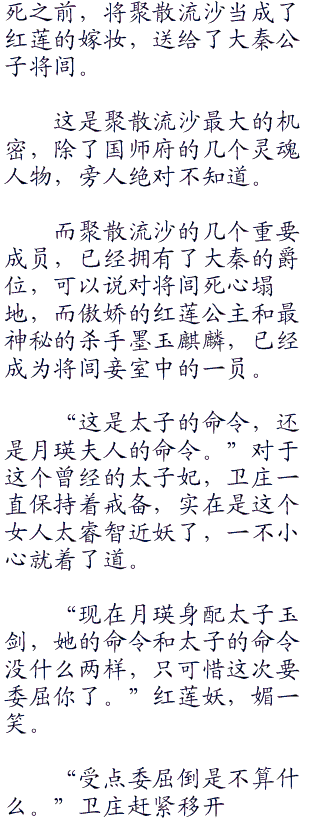 死之前，将聚散流沙当成了
红莲的嫁妆，送给了大秦公
子将闾。
这是聚散流沙最大的机
密，除了国师府的几个灵魂
人物，旁人绝对不知道。
而聚散流沙的几个重要
成员，已经拥有了大秦的爵
位，可以说对将闾死心塌
地，而傲娇的红莲公主和最
神秘的杀手墨玉麒麟，已经
成为将闾妾室中的一员。
“这是太子的命令，还
是月瑛夫人的命令。”对于
这个曾经的太子妃，卫庄一
直保持着戒备，实在是这个
女人太睿智近妖了，一不小
心就着了道。
“现在月瑛身配太子玉
剑，她的命令和太子的命令
没什么两样，只可惜这次要
委屈你了。”红莲妖，媚一
笑。
“受点委屈倒是不算什
么。”卫庄赶紧移开